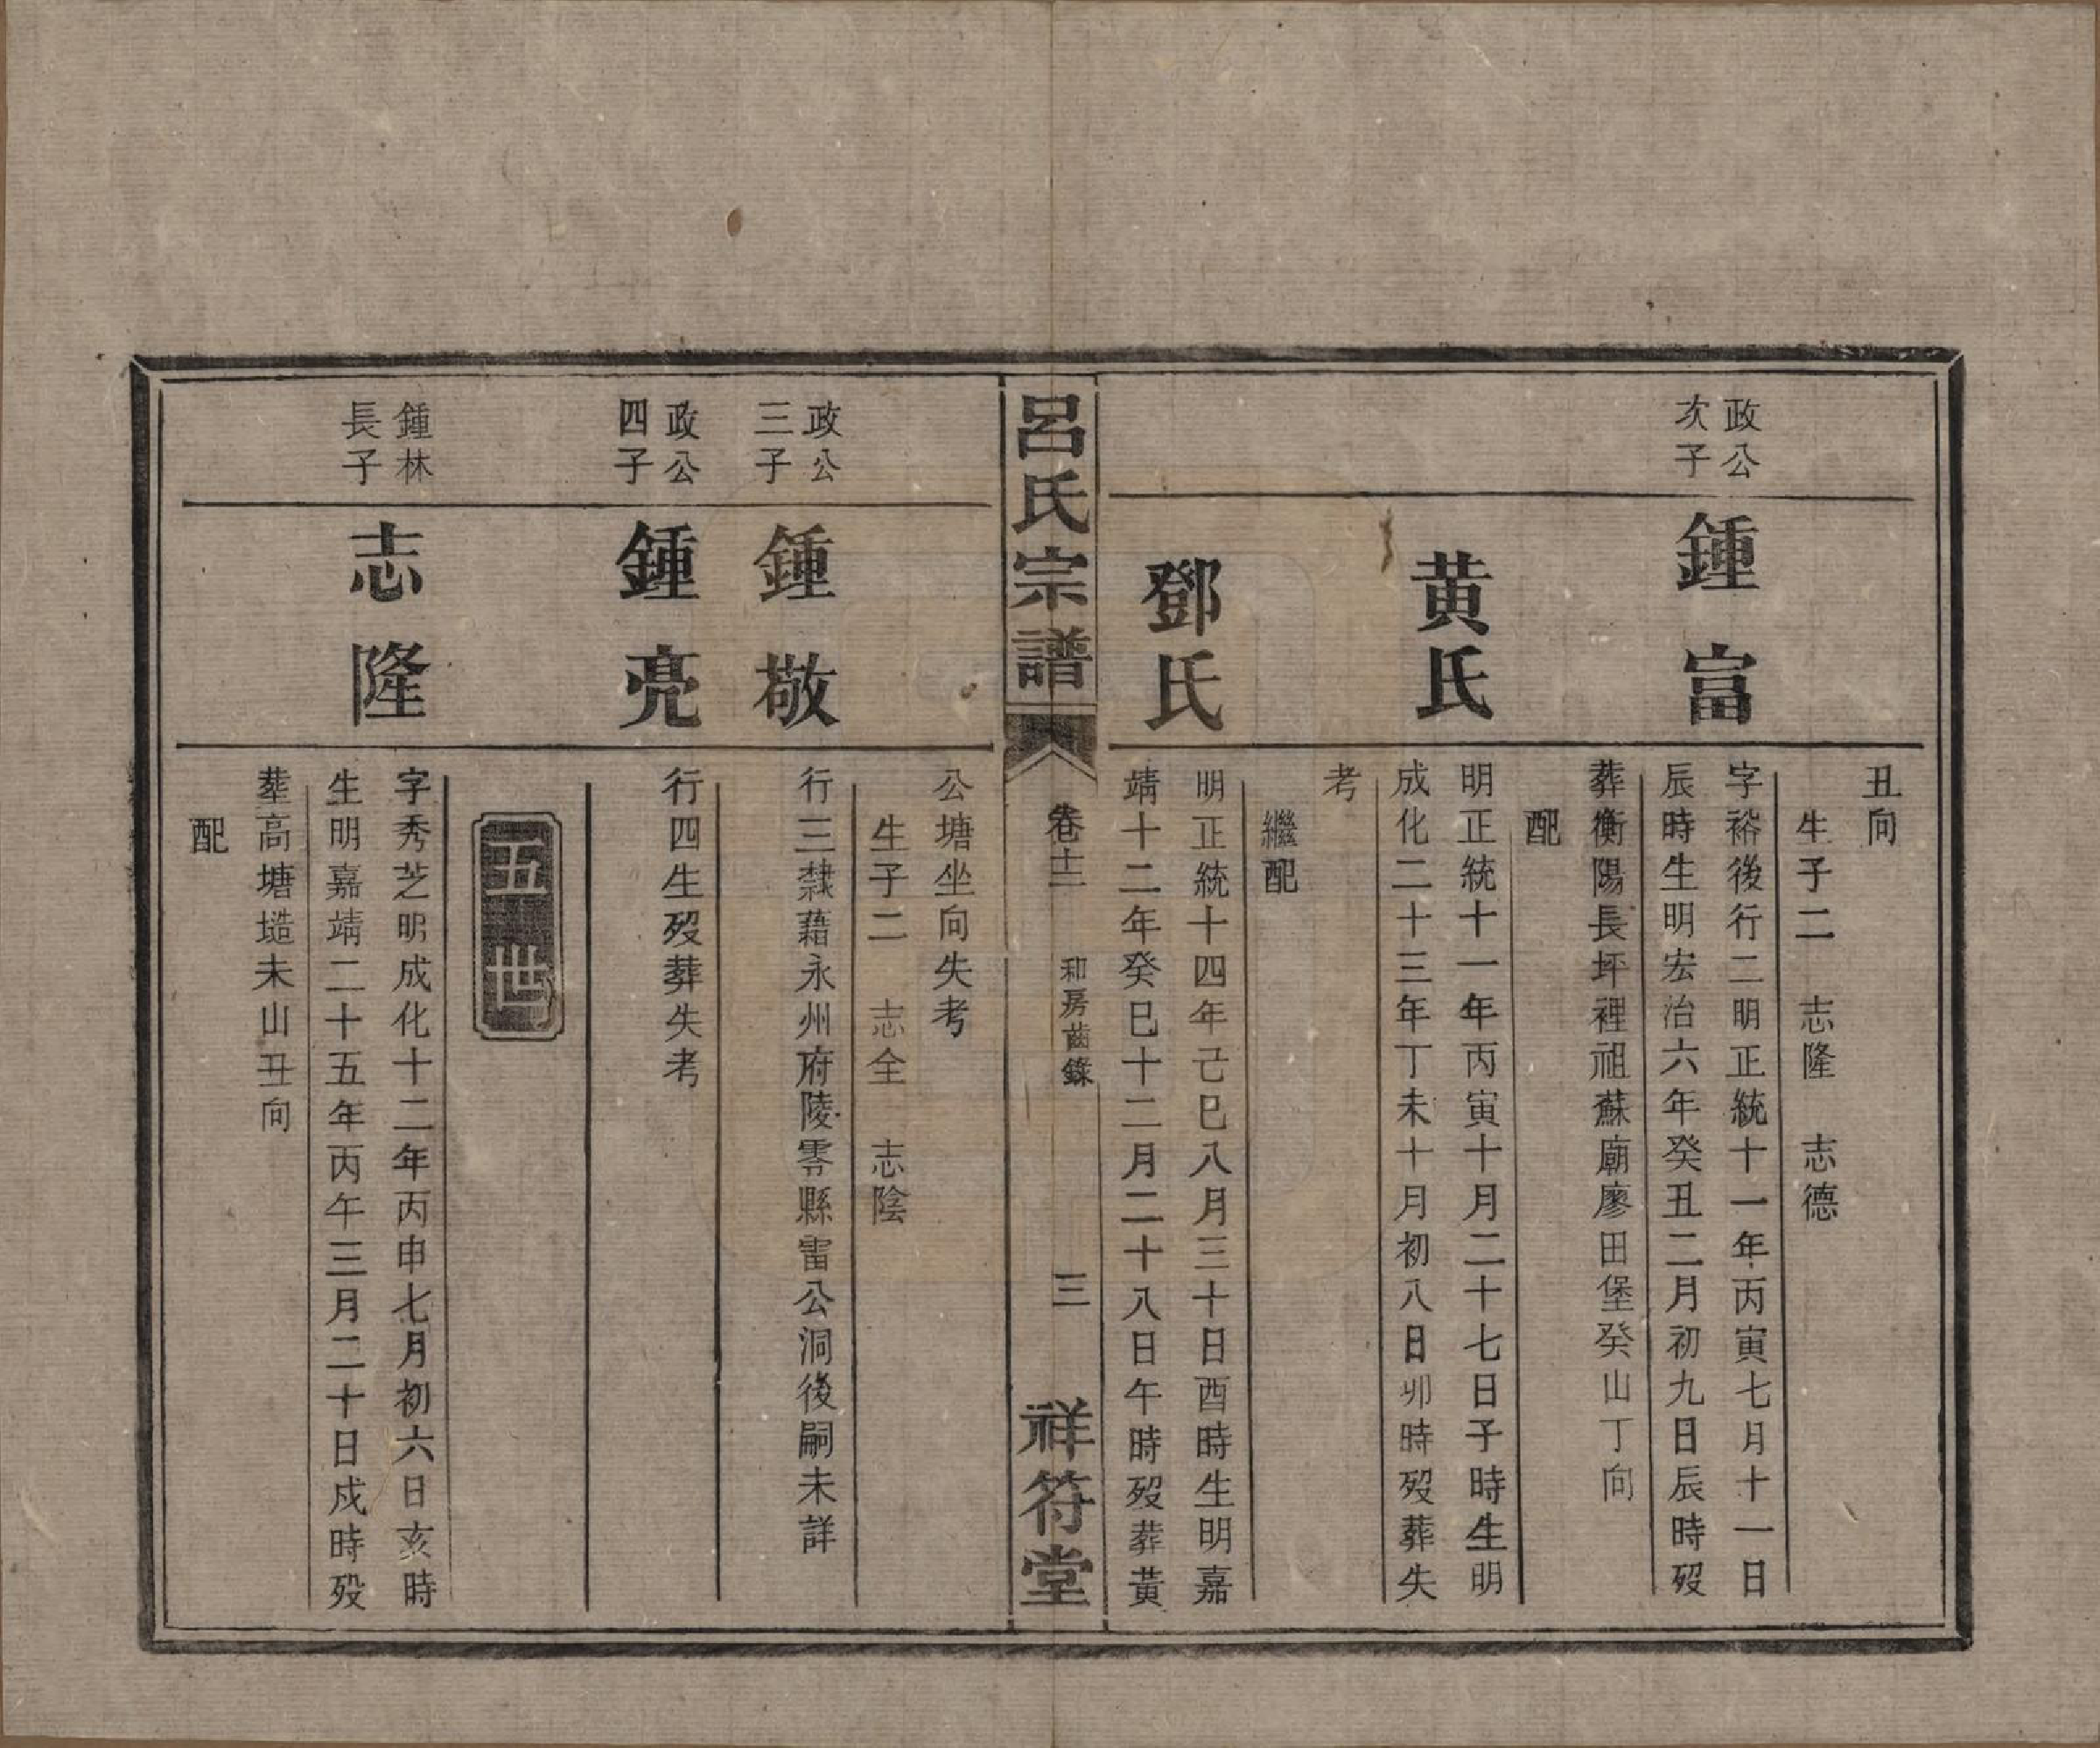 丑向
生子二　志隆　志德
政公
次子
鍾富
字裕後行二明正統十一年丙寅七月十一日
辰時生明宏治六年癸丑二月初九日辰時歿
葬衡陽長坪裡祖蘇廟廖田堡癸山丁向
配
黄氏
明正統十一年丙寅十月二十七日子時生明
成化二十三年丁未十月初八日卯時歿葬失
考
繼配
鄧氏
明正統十四年己巳八月三十日酉時生明嘉
靖十二年癸巳十二月二十八日午時歿葬黃
呂氏宗譜
卷十二
和房齒錄
三
祥符堂
公塘坐向失考
生子二　志全　志陰
政公
三子
鍾敬
行三隸藉永州府陵零縣雷公洞後嗣未詳
政公
四子
鍾亮
行四生歿葬失考
五世
鍾林
長子
志隆
字秀芝明成化十二年丙申七月初六日亥時
生明嘉靖二十五年丙午三月二十日戍時歿
塟高塘塏未山丑向
配